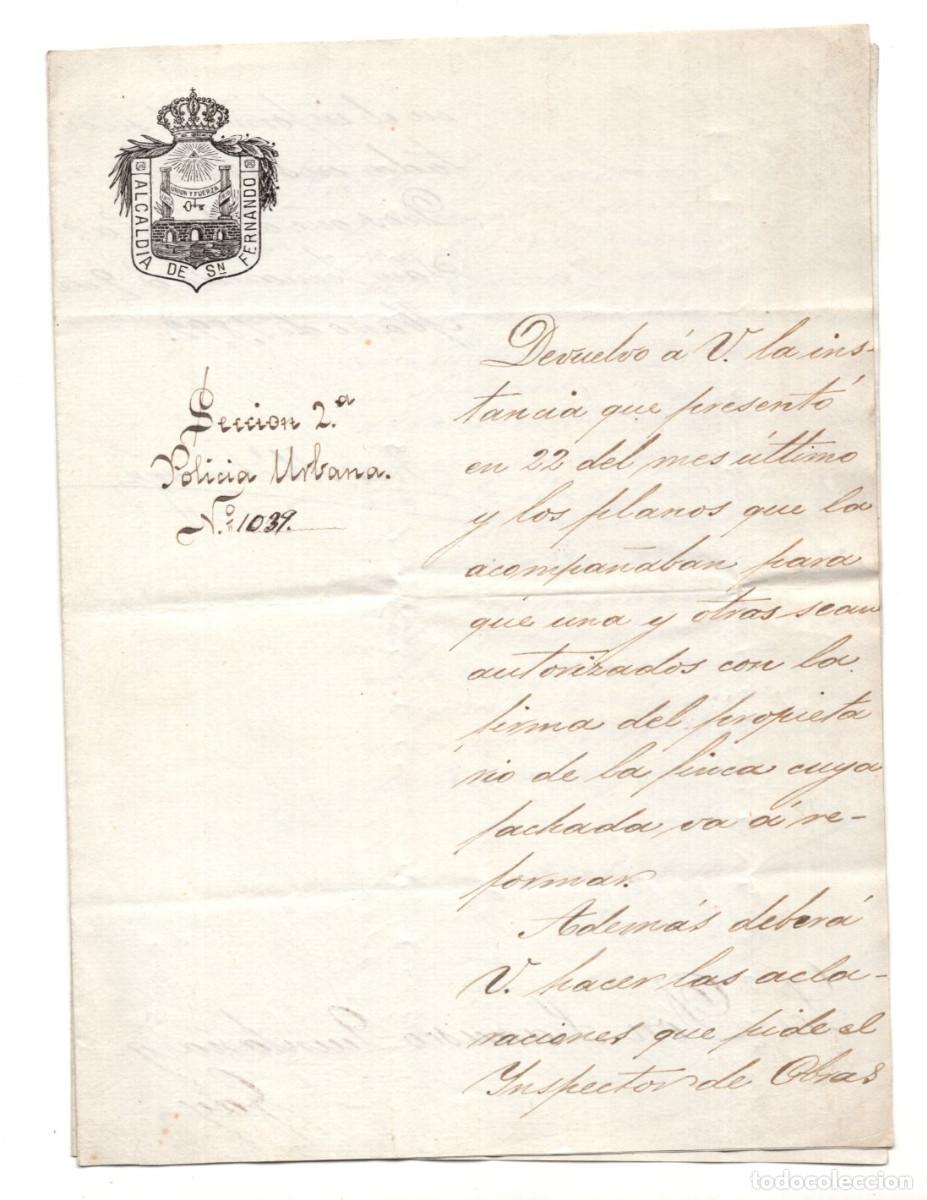 UNION Y FUERZA
ALCALDIA DE Sⁿ FERNANDO
Seccion 2.ª
Policia Urbana.
N.º 1039.
Devuelvo á V. la ins-
tancia que presentó
en 22 del mes último
y los planos que la
acompañaban para
que una y otras sean
autorizados con la
firma del propieta
rio de la finca cuya
fachada va á re-
formar.
Además deberá
V. hacer las acla-
raciones que pide el
Inspector de Obras
todocoleccion